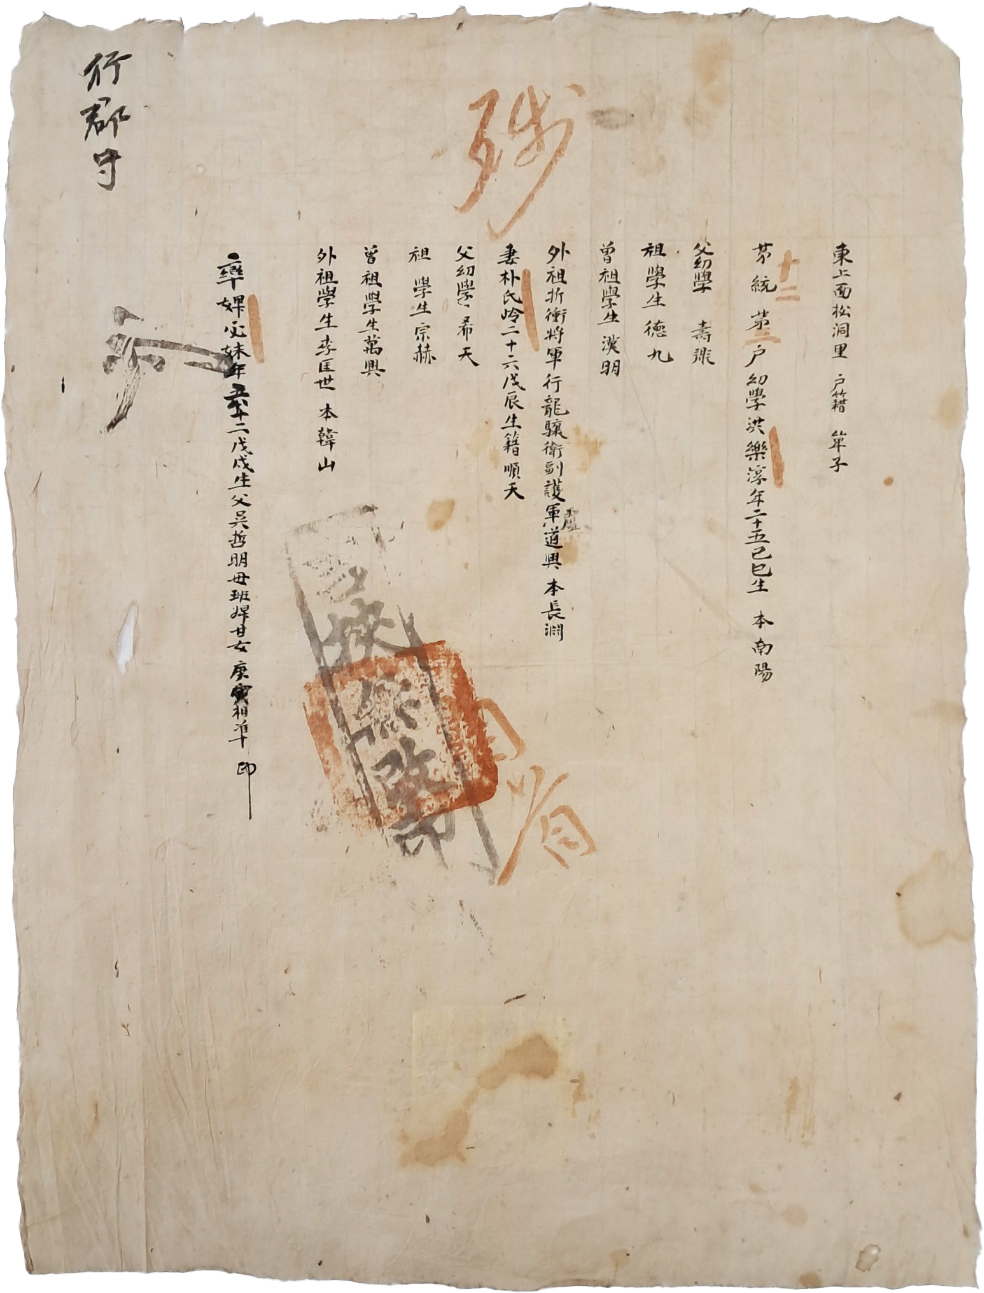 東上面松洞里 戶籍 單子
十二
第 統 第二 戶 幼學 洪樂淳年二十五己巳生 本南陽
父幼學 壽
祖學生 德九
曾祖學生 漢明
外祖折衝將軍行龍驤衛副護軍道興 本長淵
妻朴氏岭二十六戊辰生籍順天
父幼學 希天
祖 學生 宗赫
曾祖學生萬興
外祖學生李匡世 本韓山
率婢必妹年五十二戊戌生父吳哲明母班婢甘女 庚寅相準 印
行郡守
挾無改印
周 省